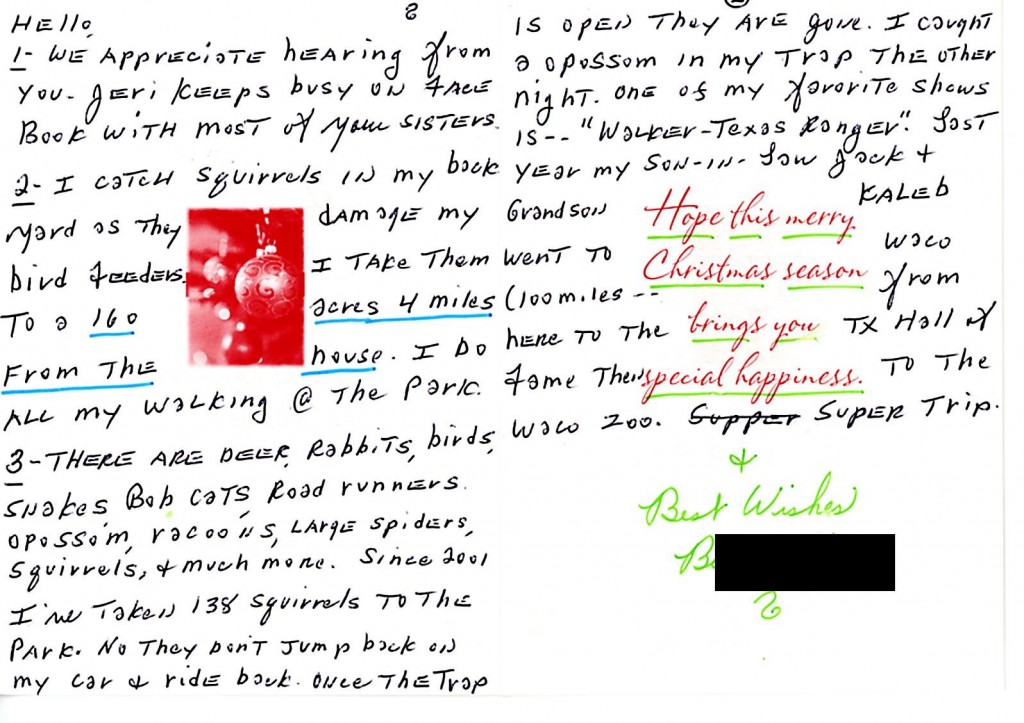 Hello,
1- We appreciate hearing from
you. Jeri keeps busy on Face
Book with most of your sisters.
2- I catch squirrels in my back
yard as they damage my
bird feeders. I take them
to a 160 acres 4 miles
from the house. I do
all my walking @ the park.
3- There are deer, rabbits, birds,
snakes Bob cats Road runners.
opossom, racoons, large spiders,
squirrels, & much more. Since 2001
I've taken 138 squirrels to the
park. No they don't jump back on
my car & ride back. Once the trap
is open they are gone. I caught
a opossom in my trap the other
night. One of my favorite shows
is-- "Walker-Texas Ranger". Last
year my son-in-law Jack +
Grandson Kaleb
went to Waco
(100 miles -- from
here to the TX Hall of
Fame then to the
Waco Zoo. Supper Super trip.
Hope this merry
Christmas season
brings you
special happiness.
&
Best Wishes
B